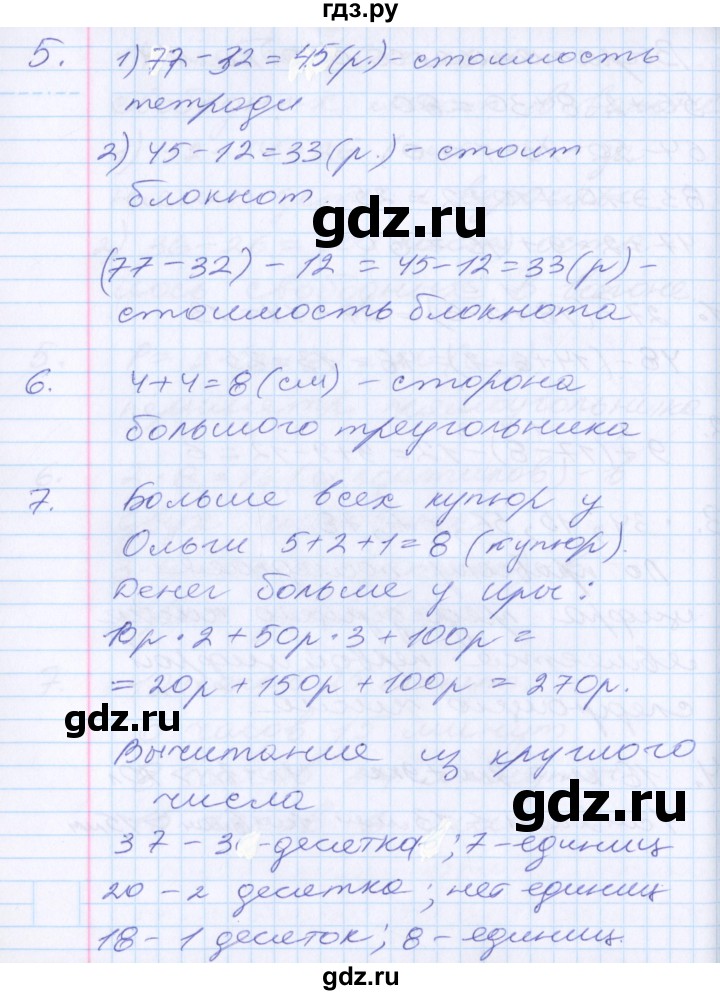 гдз.ру
5. 1) 77 - 32 = 45 (р.) - стоимость
тетради
2) 45 - 12 = 33 (р.) - стоит
блокнот.
gdz.ru
(77 - 32) - 12 = 45 - 12 = 33 (р) -
стоимость блокнота
6. 4 + 4 = 8 (см) - сторона
большого треугольника
7. Больше всех купюр у
Ольги 5 + 2 + 1 = 8 (купюр).
Денег больше у Иры:
10р · 2 + 50р · 3 + 100р =
= 20р + 150р + 100р = 270р.
gdz.ru
Вычитание из круглого
числа
gdz.ru
37 - 3 - десетка ; 7 - единиц
20 - 2 десетка ; нет единиц
18 - 1 десеток ; 8 - единиц.
gdz.ru